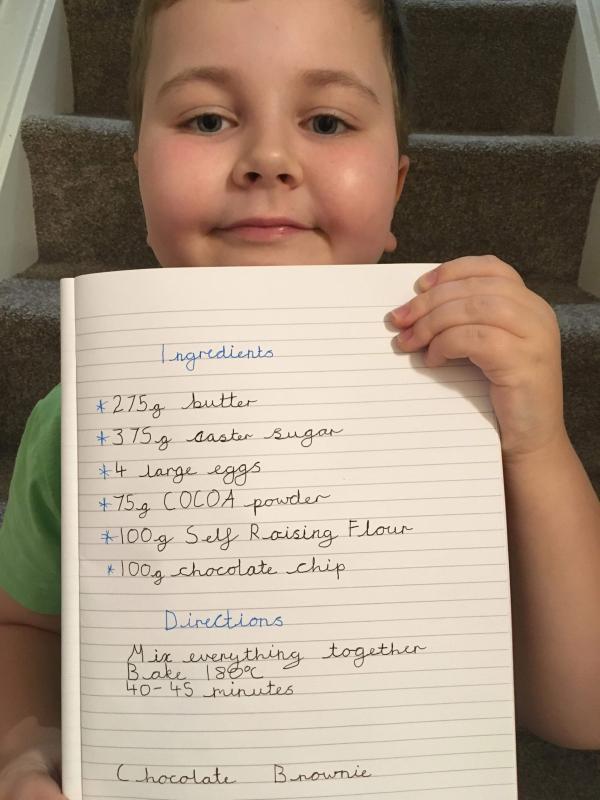 Ingredients
*275g butter
*375g caster sugar
*4 large eggs
*75g COCOA powder
*100g Self Raising Flour
*100g chocolate chip
Directions
Mix everything together
Bake 180°C
40-45 minutes
Chocolate Brownie